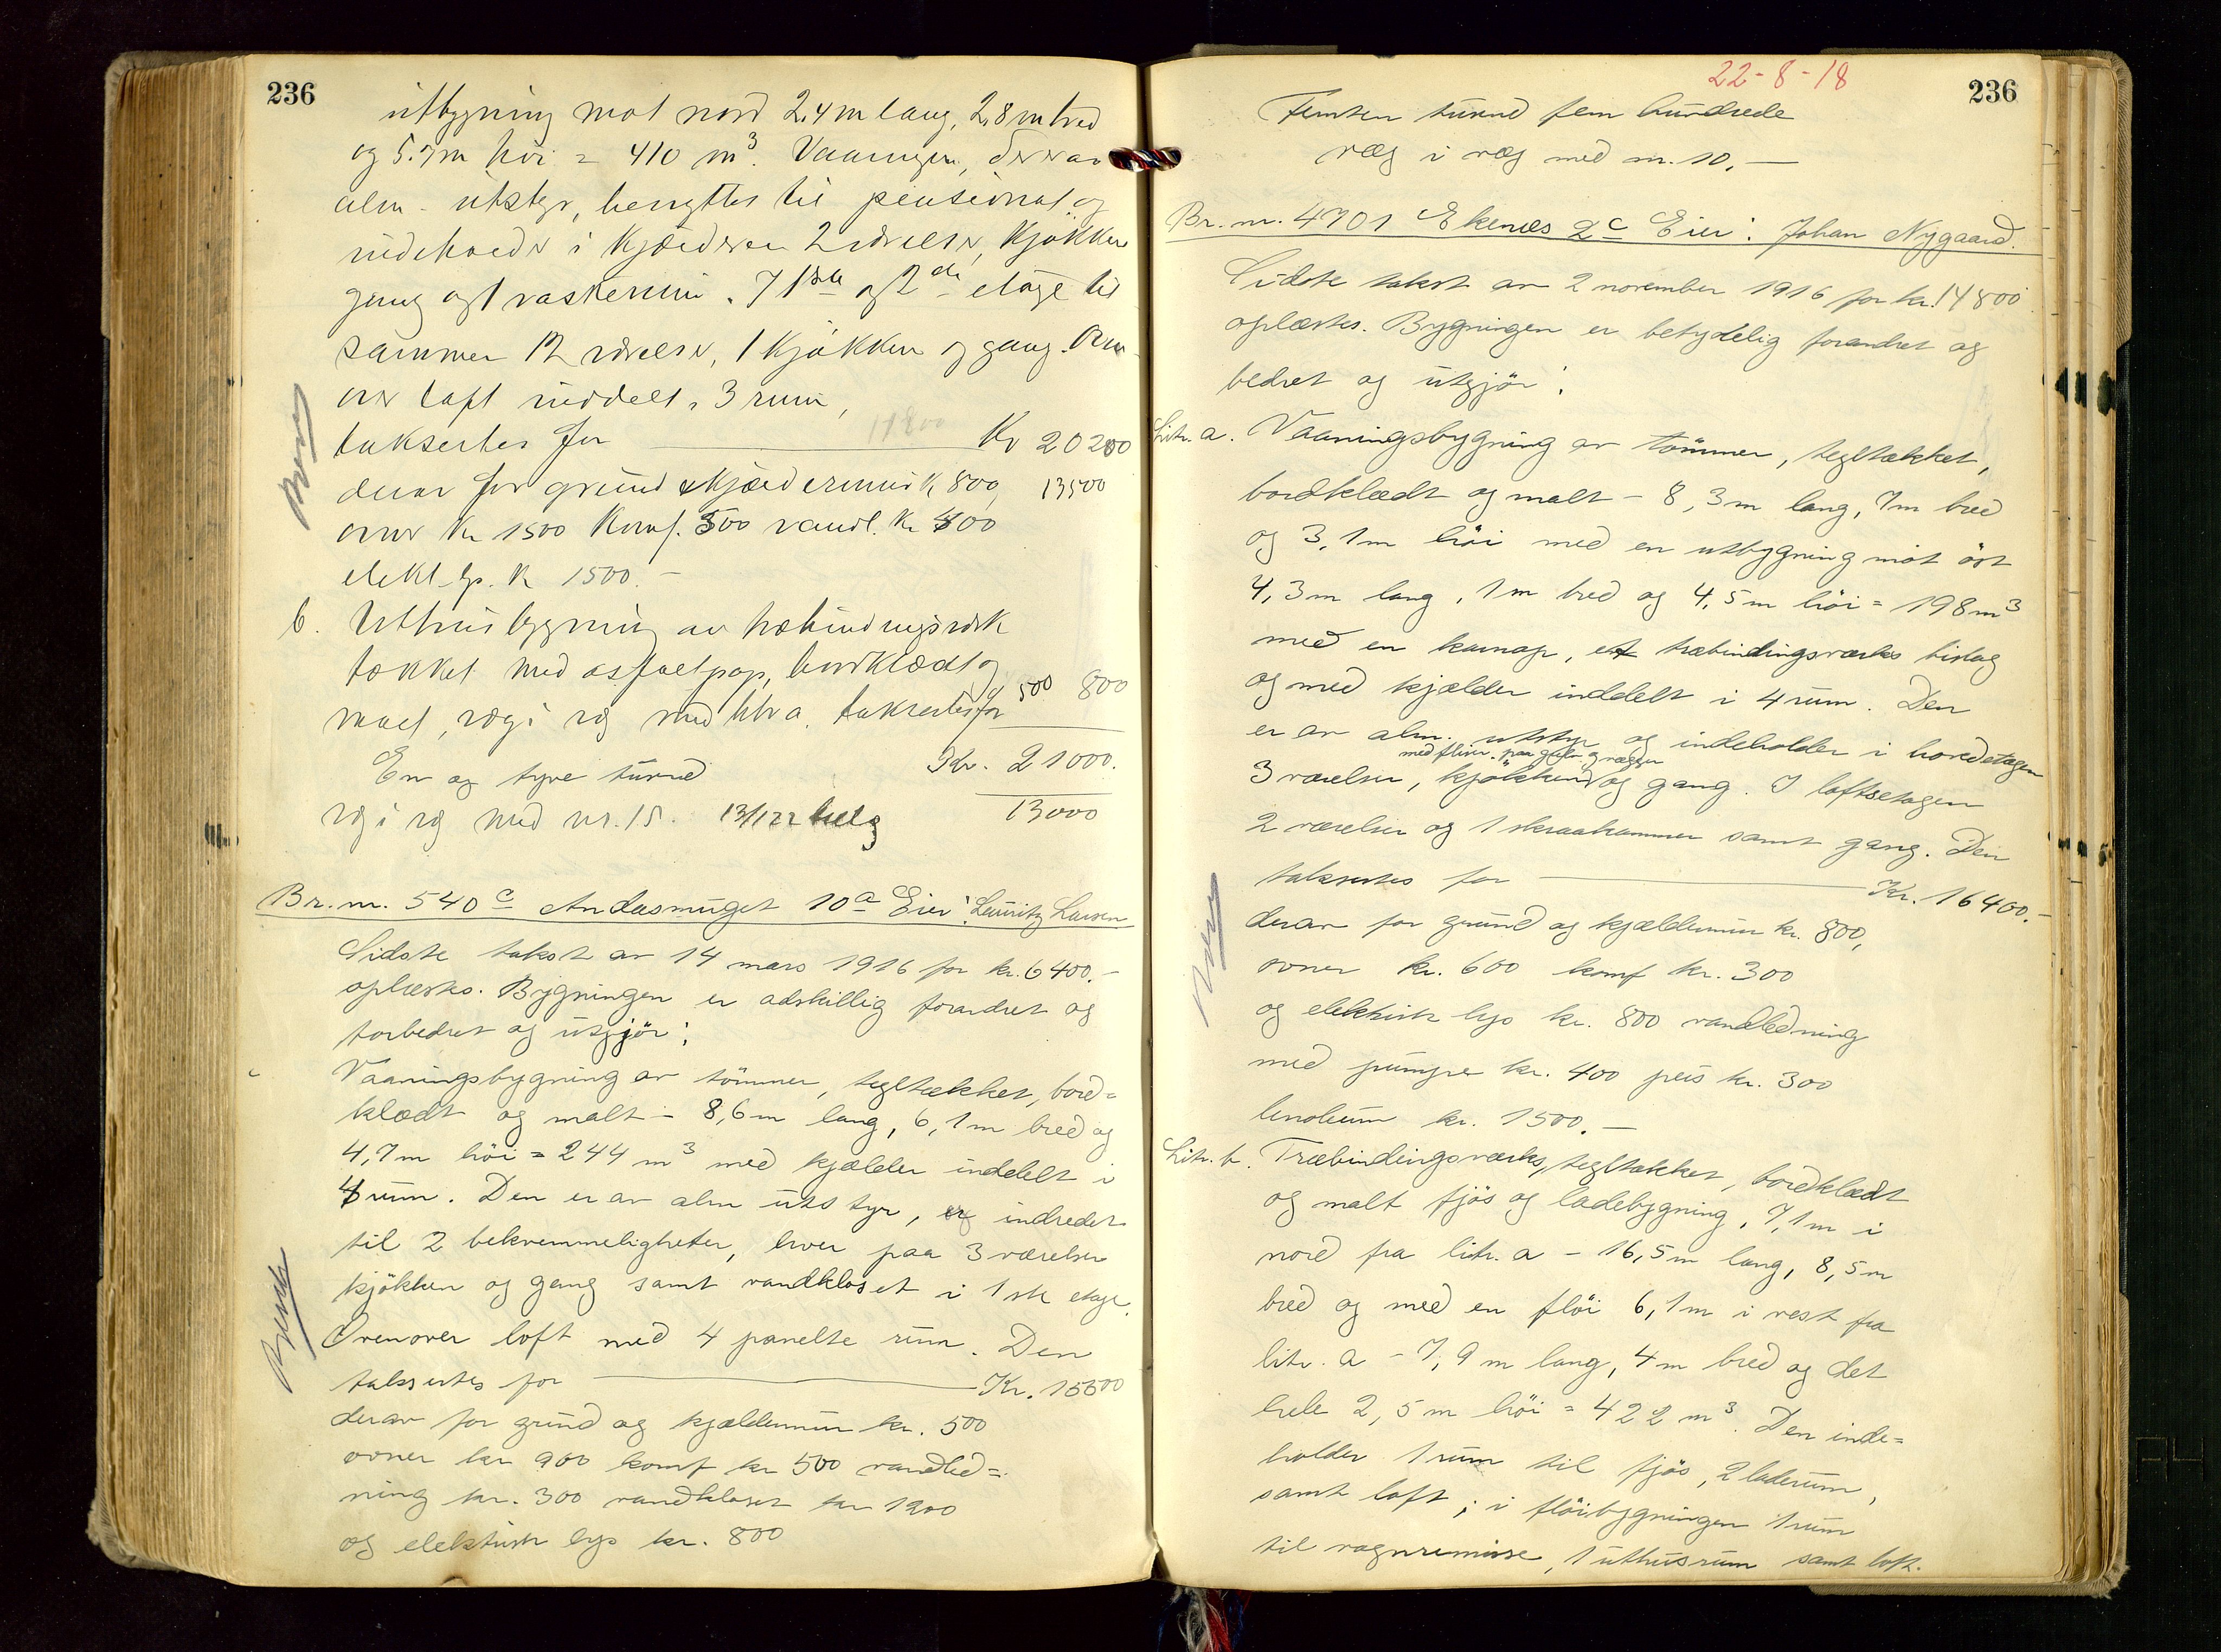 236
utbygning mot nord 2,4 m lang, 2,8 m bred
og 5.7m høi = 410 m³. Vaaningen, der er av
alm. utstyr, benyttes til pensionat og
indeholder i kjælderen 2 værelser, kjøkken
gang og 1 vaskerum. I 1ste og 2den etage til
sammen 12 værelser, 1 kjøkken og gang. Oven
over loft inddelt i 3 rum,
takseres for 11800 Kr 20200
derav for grund & kjældermur k 800, 13500
ovner kr 1500 komf. 500 vandl. kr 400
elekt. lys. k 1500.-
b. Uthusbygning av træbindingsverk
tækket med asfaltpap, bordklædt og
malt, væg i væg med litr a. takseres for 500 800
En og tyve tusund Kr. 21000.
væg i væg med nr. 15. 13/122 13000
Br. nr. 540c Andasmuget 10a Eier: Lauritz Larsen
Sidste takst av 14 mars 1916 for kr. 6400.-
oplæstes. Bygningen er adskillig forandret og
forbedret og utgjör:
Vaaningsbygning av tömmer, tegltækket, bord=
klædt og malt - 8,6m lang, 6,1m bred og
4,7m höi = 244 m³ med kjælder inddelt i
4 rum. Den er av alm utstyr, er indredet
til 2 bekvemmeligheter, hver paa 3 værelser
kjökken og gang samt vandkloset i 1ste etage.
Ovenover loft med 4 panelte rum. Den
takseres for Kr. 15500
derav for grund og kjældermur kr. 500
ovner kr 900 komf kr 500 vandled=
ning kr. 300 vandkloset kr 1200
og elektrisk lys kr. 800
22-8-18
236
Femten tusund fem hundrede
væg i væg med nr. 10.-
Br. nr. 4701 Ekenæs 2c Eier: Johan Nygaard.
Sidste takst av 2 november 1916 for kr. 14800
oplæstes. Bygningen er betydelig forandret og
bedret og utgjör:
Litr. a. Vaaningsbygning av tömmer, tegltækket,
bordklædt og malt - 8,3m lang, 7m bred
og 3,1m höi med en utbygning mot öst
4,3m lang, 1m bred og 4,5m höi = 198m³
med en karnap, et træbindingsverks bislag
og med kjælder inddelt i 4 rum. Den
er av alm. utstyr og indeholder i hovedetagen
med fliser paa gulv og vægger
3 værelser, kjøkken og gang. I loftsetagen
2 værelser og 1 skraakammer samt gang. Den
takseres for Kr. 16400.-
derav for grund og kjældermur kr. 800,
ovner kr. 600 komf kr. 300
og elektrisk lys kr. 800 vandledning
med pumper kr. 400 peis kr. 300
linoleum kr. 1500.-
Litr. b. Træbindingsverks, tegltækket, bordklædt
og malt fjös og ladebygning, 7,1m i
nord fra litr. a - 16,5m lang, 8,5m
bred og med en flöi 6,1m i vest fra
litr. a - 7,9 m lang, 4m bred og det
hele 2,5m höi = 422 m³. Den inde=
holder 1 rum til fjös, 2 laderum,
samt loft; i flöibygningen 1 rum
til vognremisse, 1 uthusrum samt loft.